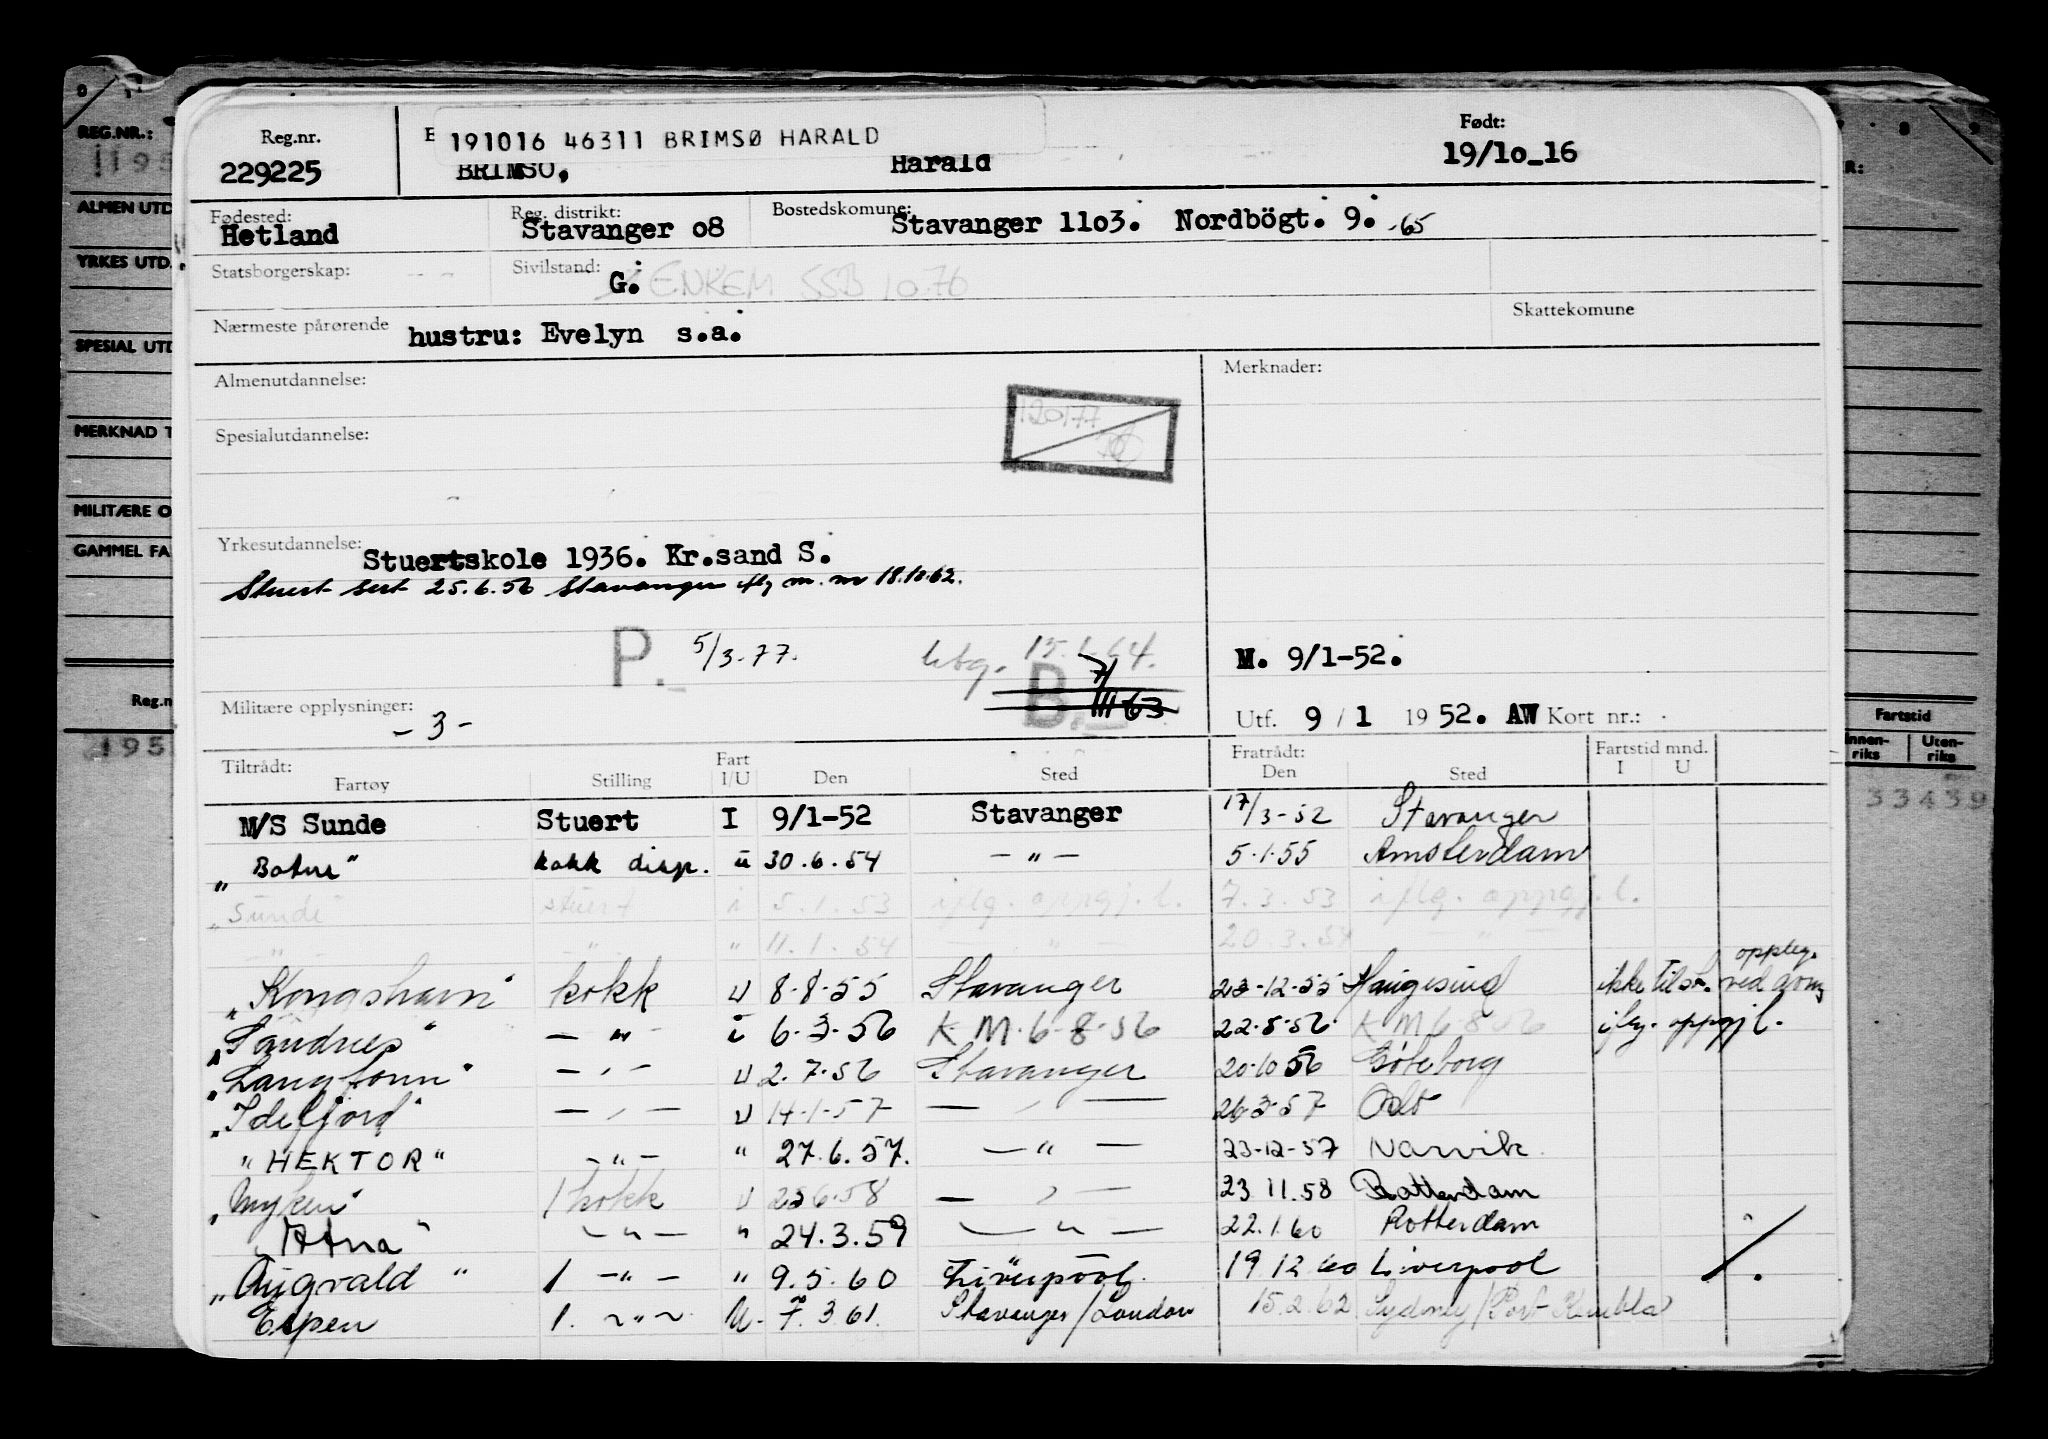 REG.NR.:
ALMEN UTD
YRKES UTD.
SPESIAL UTD
MERKNAD T
MILITÆRE O
GAMMEL FA
Reg.n
195
Reg.nr.
229225
E
191016 46311 BRIMSØ HARALD
BRIMSO, Harald
Født:
19/1o_16
Fødested:
Hetland
Reg. distrikt:
Stavanger o8
Bostedskomune:
Stavanger 11o3. Nordbögt. 9. 65
Statsborgerskap:
Sivilstand:
G. ENKEM SSB 10.76
Nærmeste pårørende
hustru: Evelyn s.a.
Skattekomune
Almenutdannelse:
Merknader:
120177
Spesialutdannelse:
Yrkesutdannelse:
Stuertskole 1936. Kr.sand S.
Stuert sert 25.6.56 Stavanger iflg m. nr 18.10.62.
P. 5/3-77.
utg. 15.1-64.
B. 7/III-63
M. 9/1-52.
Militære opplysninger:
- 3 -
Utf. 9 / 1 1952. AW Kort nr.:
Tiltrådt:
Fartøy Stilling Fart I/U Den Sted
Fratrådt:
Den Sted
Fartstid mnd.
I U
M/S Sunde Stuert I 9/1-52 Stavanger 17/3-52 Stavanger
kokk disp. u 30.6.54 — " — 5.1.55 Amsterdam
"Sunde" stuert i 5.1.53 iflg. oppgj.l. 7.3.53 iflg. oppgj.l.
" " " 11.1.54 — " — 20.3.54 — " —
"Kongshavn" kokk U 8-8-55 Stavanger 23-12-55 Haugesund ikke tilst. ved avm. oppleg.
"Sandnes" — " — i 6.3-56 K.M.6-8-56 22.5-56 K M 6-8-56 iflg. oppgj.l.
"Langfonn" — " — U 2.7.56 Stavanger 20.10 56 Göteborg
"Idefjord" — " — U 14-1-57 — " — 26.3.57 Oslo
"HEKTOR" — " — " 27.6.57. — " — 23-12-57 Narvik
"Myken" 1 kokk U 25.6.58 — " — 23 11.58 Rotterdam
"Atna" — " — " 24.3.59 — " — 22.1.60 Rotterdam
"Augvald" 1 — " — " 9.5.60 Liverpool. 19 12 60 Liverpool
Espen 1. — " — U. 7.3 61. Stavanger/London 15.2.62 Sydney/Port Kembla
Fartstid
Innen-
riks
Uten-
riks
33439